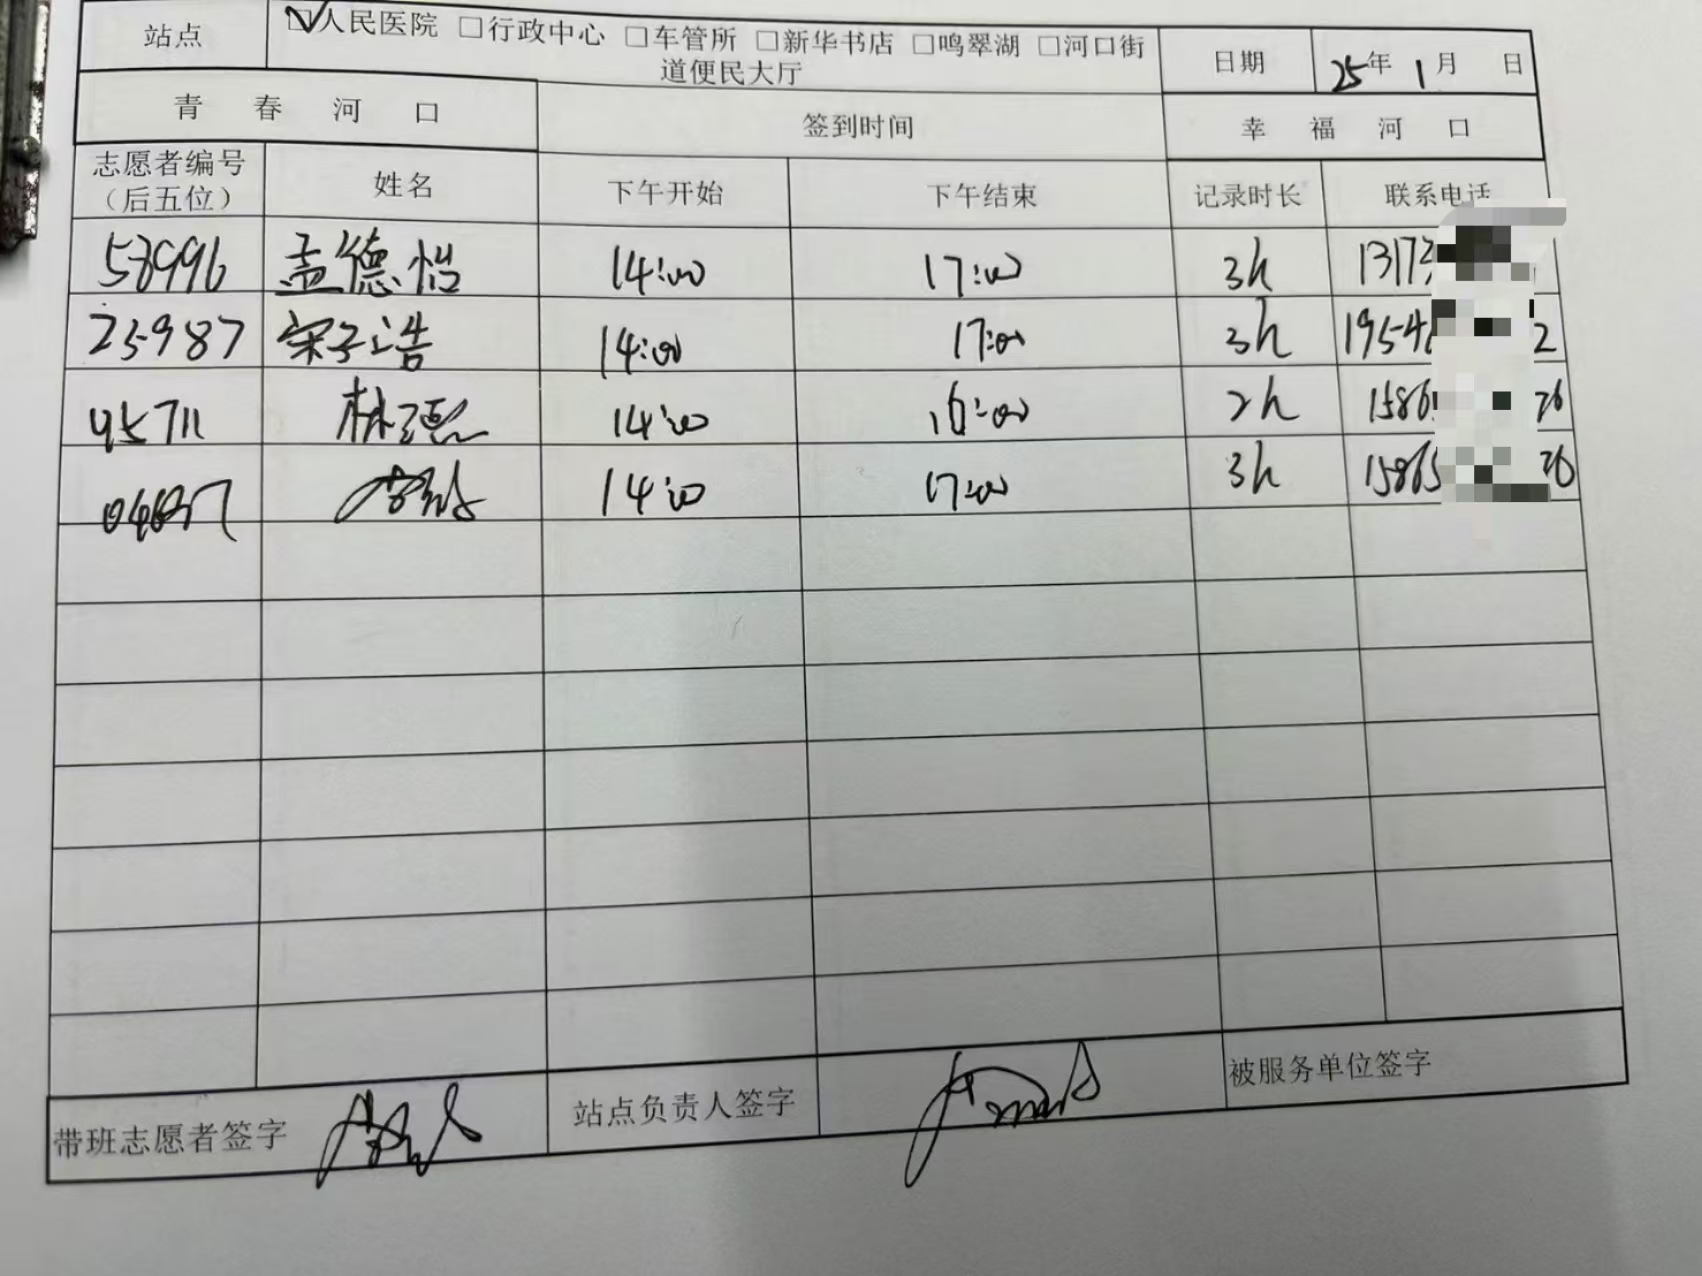 站点 ☑人民医院 □行政中心 □车管所 □新华书店 □鸣翠湖 □河口街 日期 25年1月 日
道便民大厅
青春河口 签到时间 幸福河口
志愿者编号 姓名 下午开始 下午结束 记录时长 联系电话
(后五位)
58996 孟德怡 14:00 17:00 3h 1317
25987 宋子浩 14:00 17:00 3h 1954 2
95711 林 14:00 16:00 2h 1586 26
14:00 17:00 3h 15865 26
带班志愿者签字 站点负责人签字 被服务单位签字